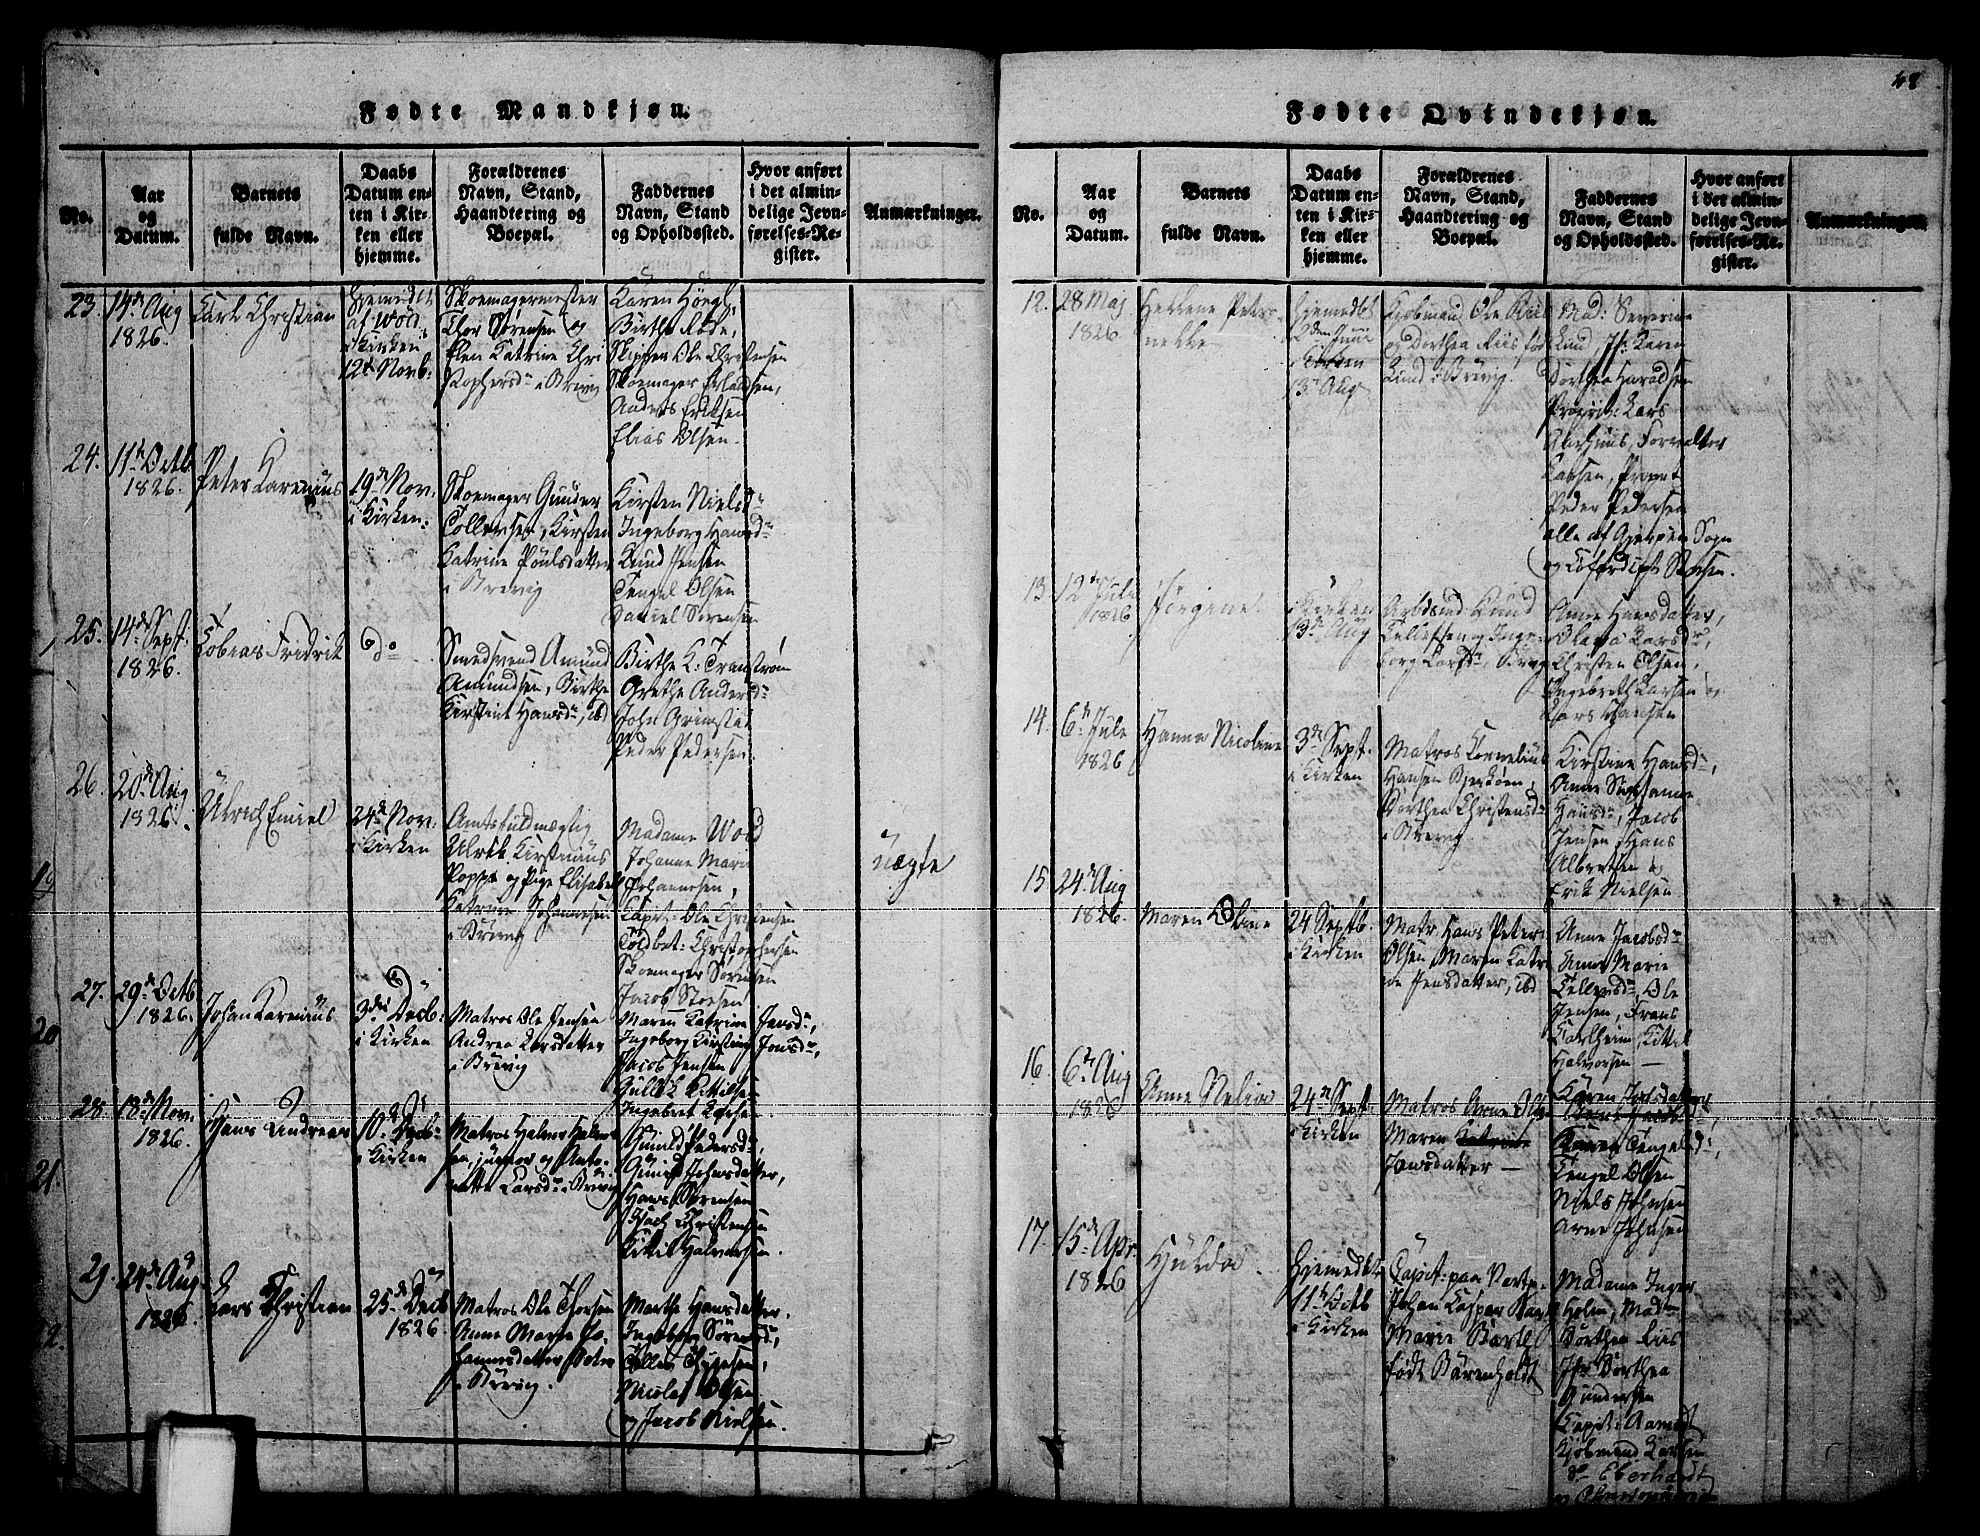 48
Fødte Mandkjøn.
No.
Aar
og
Datum.
Barnets
fulde Navn.
Daabs
Datum en-
ten i Kir-
ken eller
hjemme.
Forældrenes
Navn, Stand,
Haandtering og
Boepæl.
Faddernes
Navn, Stand
og Opholdssted.
Hvor anført
i det almin-
delige Jevn-
førelses-Re-
gister.
Anmærkninger.
23. 14de Aug
1826.
Carl Christian
Hjemedøbt
af Wold
i Kirken
12te Novb:
Skoemagermester
Thor Sørensen og
Elen Katrine Chri
stophersdr i Brevig
Karen Höegh,
Birthe Røde,
Skipper Ole Christensen
Skoemager Erlandsen,
Anders Eriksen
Elias Olsen.
24. 11te Octb
1826.
Peter Karenius
19de Nov:
i Kirken:
Skoemager Gunder
Tollevsen, Kirsten
Katrine Poulsdatter
i Brevig
Kirsten Nielsdr
Ingeborg Hansdr
Knud Jensen
Tengel Olsen
Daniel Sørensen
25. 14de Sept:
1826.
Tobias Fridrik
do
Smedsvend Amund
Amundsen, Birthe
Kirstine Hansdr, ibd
Birthe K: Transtrøm
Grethe Andersdr
John Grimstad
Peder Pedersen
26. 20de Aug
1826.
Ulrich Emiel
24de Nov:
i Kirken
Amtsfuldmægtig
Ulrik Kirstinius
Poppe og Pige Elisabeth
Katrine Johannesen
i Brevig
Madame Wold
Johanne Marie
Johannesen,
Capt: Ole Christensen
Toldbet: Christophersen
Skoemager Sørensen
Jacob Storsen
Uægte
27. 29de Octb
1826.
Johan Karenius
3die Decb:
i Kirken
Matros Ole Jensen
Andrea Larsdatter
i Brevig
Maren Katrine Jensdr,
Ingeborg Kirstine Jonsdr,
Jacob Jensen
Gullek Kittilsen
Ingebret Larsen
28. 18de Nov.
1826.
Hans Andreas
10de Decb:
i Kirken
Matros Halvor Halvor
sen, junior og Anto-
nette Larsdr i Brevig
Gunild Pedersdr,
Gunild Johnsdatter,
Hans Sørensen
Isach Christensen
Kittil Halvorsen.
29. 24de Aug.
1826
Lars Christian
25de Decb
1826.
Matros Ole Thorsen
Anne Marie Jo-
hannesdatter
i Brevig.
Marthe Hansdatter,
Ingeborg Sørensdr,
Nicolai Olsen
og Jacob Nielsen.
19
20
21.
22.
Fødte Qvindekjøn.
No.
Aar
og
Datum.
Barnets
fulde Navn.
Daabs
Datum en-
ten i Kir-
ken eller
hjemme.
Forældrenes
Navn, Stand,
Haandtering og
Boepæl.
Faddernes
Navn, Stand
og Opholdssted.
Hvor anført
i det almin-
delige Jevn-
førelses-Re-
gister.
Anmærkninger.
12. 28 Maj
1826
Hellene Petro
nelle
Hjemedøbt
2den Juni
i Kirken
13de Aug
Kjøbmand Ole Riis
og Dorthea Riis fød
Lund i Brevig.
Mad: Severine
Lund, Jfr: Karen
Dorthea Haraldsen
Propriet: Lars
Forvalter
Larsen, Propriet
Peder Pedersen
alle af Gjerpen Sogn
13. 12te Juli
1826
Jørgine
i Kirken
13de Aug
Arbdsmd Knud
Tellefsen og Inge-
borg Larsdr, Brevig
Anne Hansdatter,
Olava Larsdr,
Christen Olsen,
Ingebreth Larsen og
Lars Hansen
14. 6te Jule
1826
Hanna Nicoline
3de Sept.
i Kirken
Matros Cornelius
Hansen Bjerkøen,
Dorthea Christensdr
i Brevig.
Kirstine Hansdr,
Anne Susanne
Hansdr, Jacob
Jensen Hans
Albretsen &
Erik Nielsen
15. 24de Aug
1826.
Maren Oline
24 Septb.
i Kirken
Matr. Hans Peter
Olsen, Maren Katri
ne Jensdatter, ibd
Anne Jacobsdr
Anne Marie
Tellevsdr, Ole
Jensen, Frans
Carlheim, Kittel
Halvorsen —
16. 6te Aug
1826
Anne Nelia
24de Sept
i Kirken
Matros Arne Olsen
Maren Katrine
Jonsdatter —
Karen Jonsdatter
Karen Tengelsdr,
Tengel Olsen
Niels Johnsen
Arne Johnsen
17. 15de Apr:
1826
Hulda.
Hjemedøbt
11te Octb
i Kirken
Capit: paa Vartp.
Johan Caspar
Marie Barth
født Bärenholdt
Madame Inger
Holm, Madm
Dorthea Riis
Jfr Dorthea
Gundersen
Capit: Aamodt
Kjøbmand Larsen
do Eberhardt